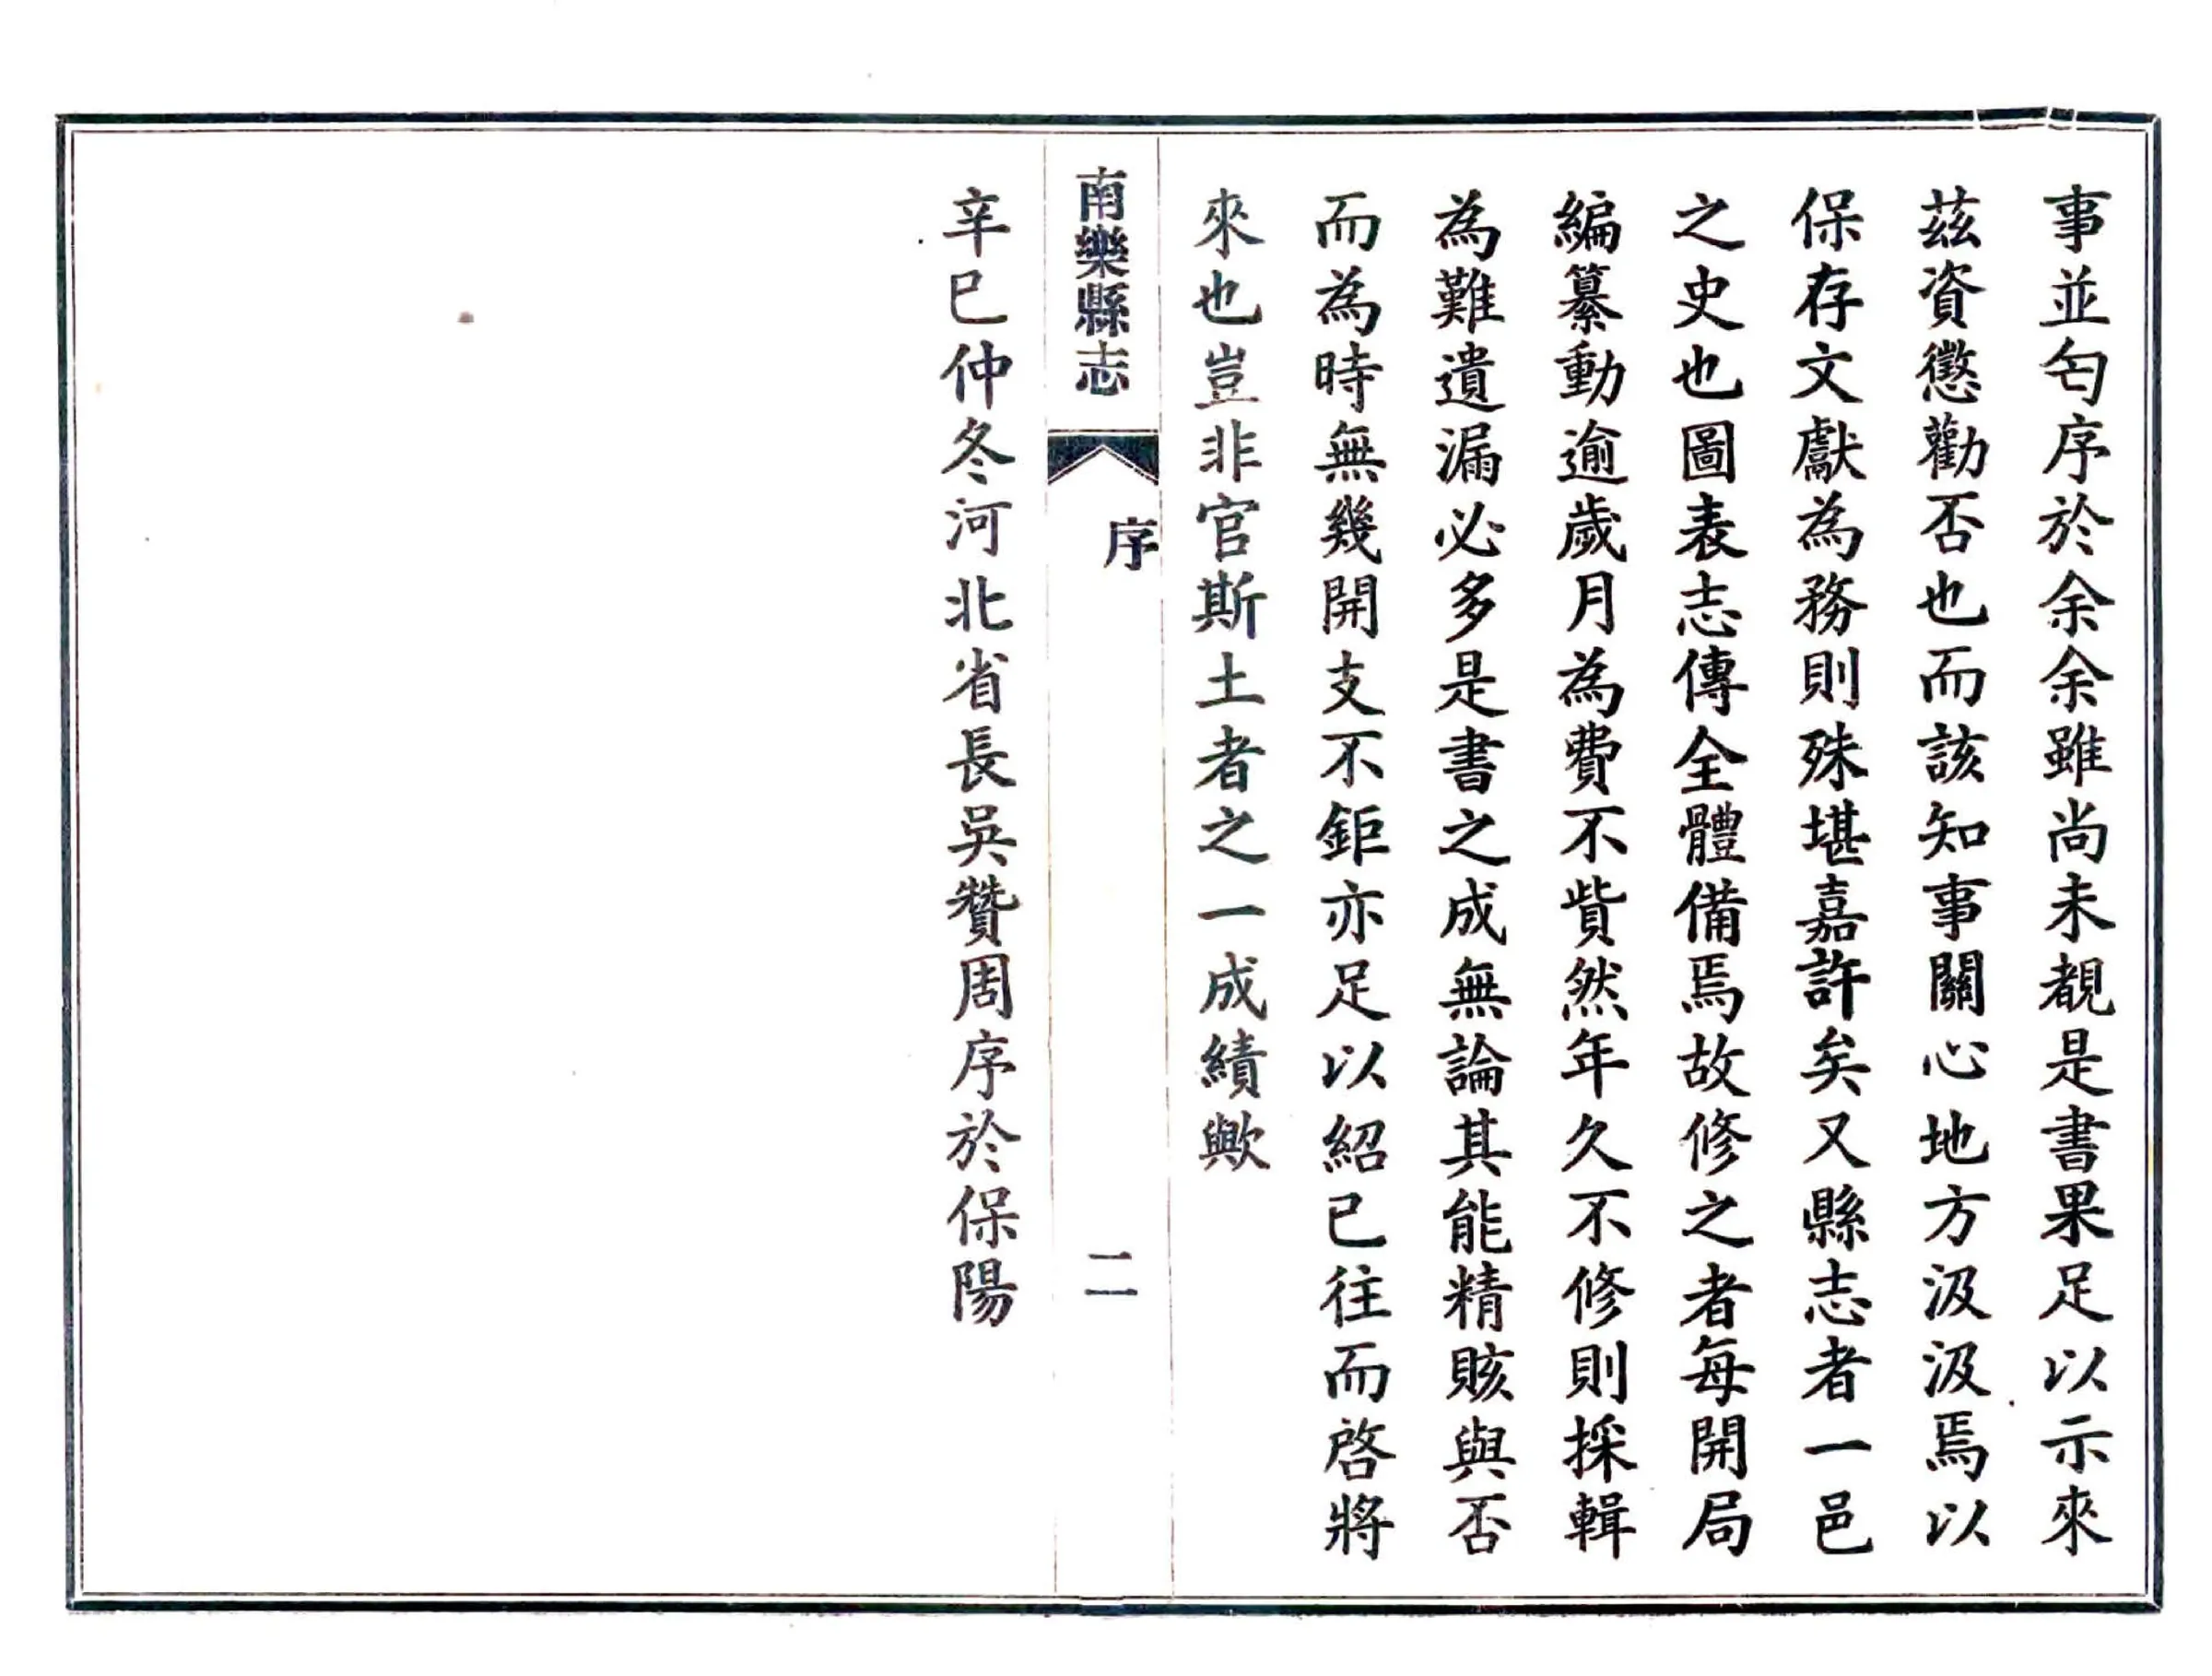 事並匄序於余余雖尚未覩是書果足以示來
茲資懲勸否也而該知事關心地方汲汲焉以
保存文獻為務則殊堪嘉許矣又縣志者一邑
之史也圖表志傳全體備焉故修之者每開局
編纂動逾歲月為費不貲然年久不修則採輯
為難遺漏必多是書之成無論其能精賅與否
而為時無幾開支不鉅亦足以紹已往而啓將
來也豈非官斯土者之一成績歟
南樂縣志
序
二
辛巳仲冬河北省長吳贊周序於保陽